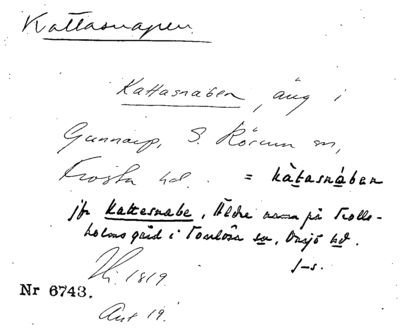 Kattasnapen.
Kattasnaben, äng i
Gunnarp, S. Rörum sn,
Frosta hd. = kàtasnáben
jfr Kattesnabe, Äldre namn på Trolle-
holms gård i Torrlösa sn, Onsjö hd.
J-s.
1819
Nr 6743.
Avt 19.